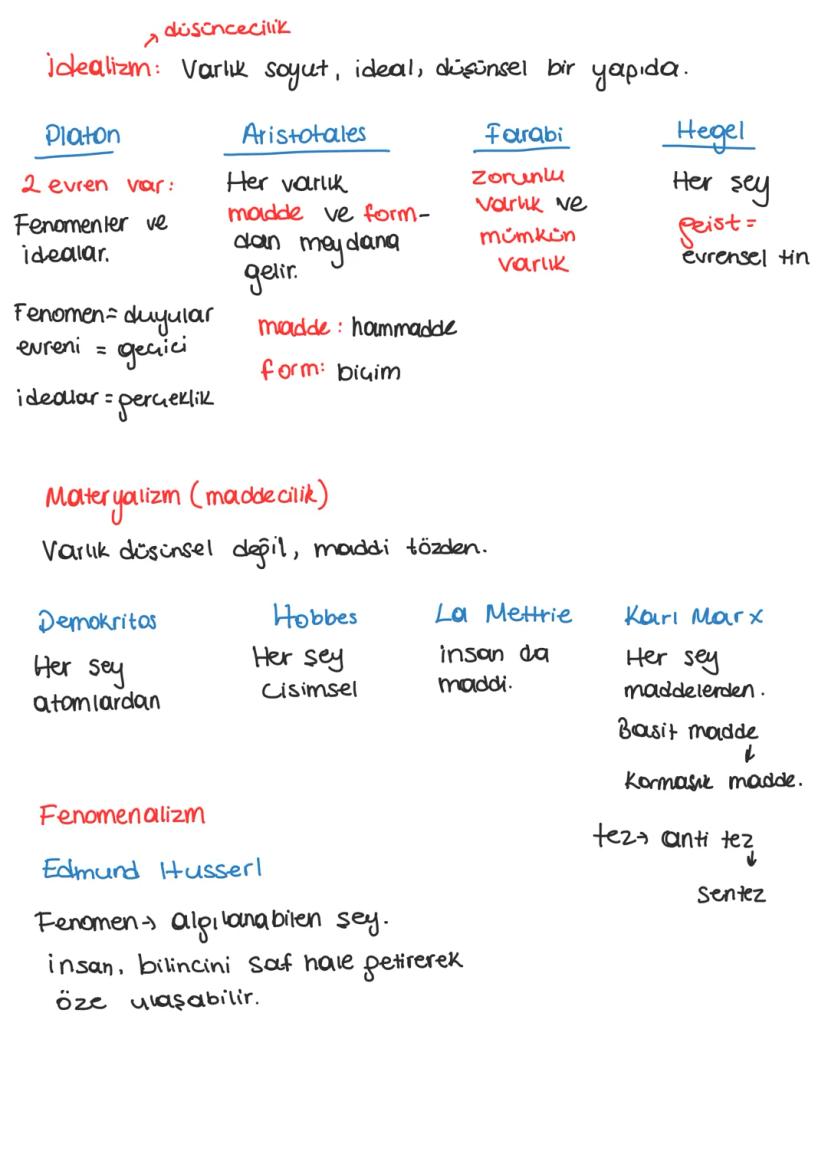 düşüncecilik
idealizm: Varlık soyut, ideal, düşünsel bir yapıda.
Platon
2 evren var:
Fenomenler ve
idealar.
Fenomen= duyular
evreni = geçici
idealar = gerçeklik
Aristotales
Her varlık
madde ve form-
dan meydana
gelir.
madde: hammadde
form: biçim
Farabi
zorunlu
varlık ve
mümkün
varlık
Hegel
Her şey
geist=
evrensel tin
Materyalizm (maddecilik)
Varlık düşünsel değil, maddi tözden.
Demokritos
Her şey
atomlardan
Hobbes
Her şey
cisimsel
La Mettrie
insan da
maddi.
Karl Marx
Her şey
maddelerden.
Basit madde
↓
Karmaşık madde.
tez→ anti tez
↓
Sentez
Fenomenalizm
Edmund Husserl
Fenomen→ algılanabilen şey.
insan, bilincini saf hale getirerek
öze ulaşabilir.